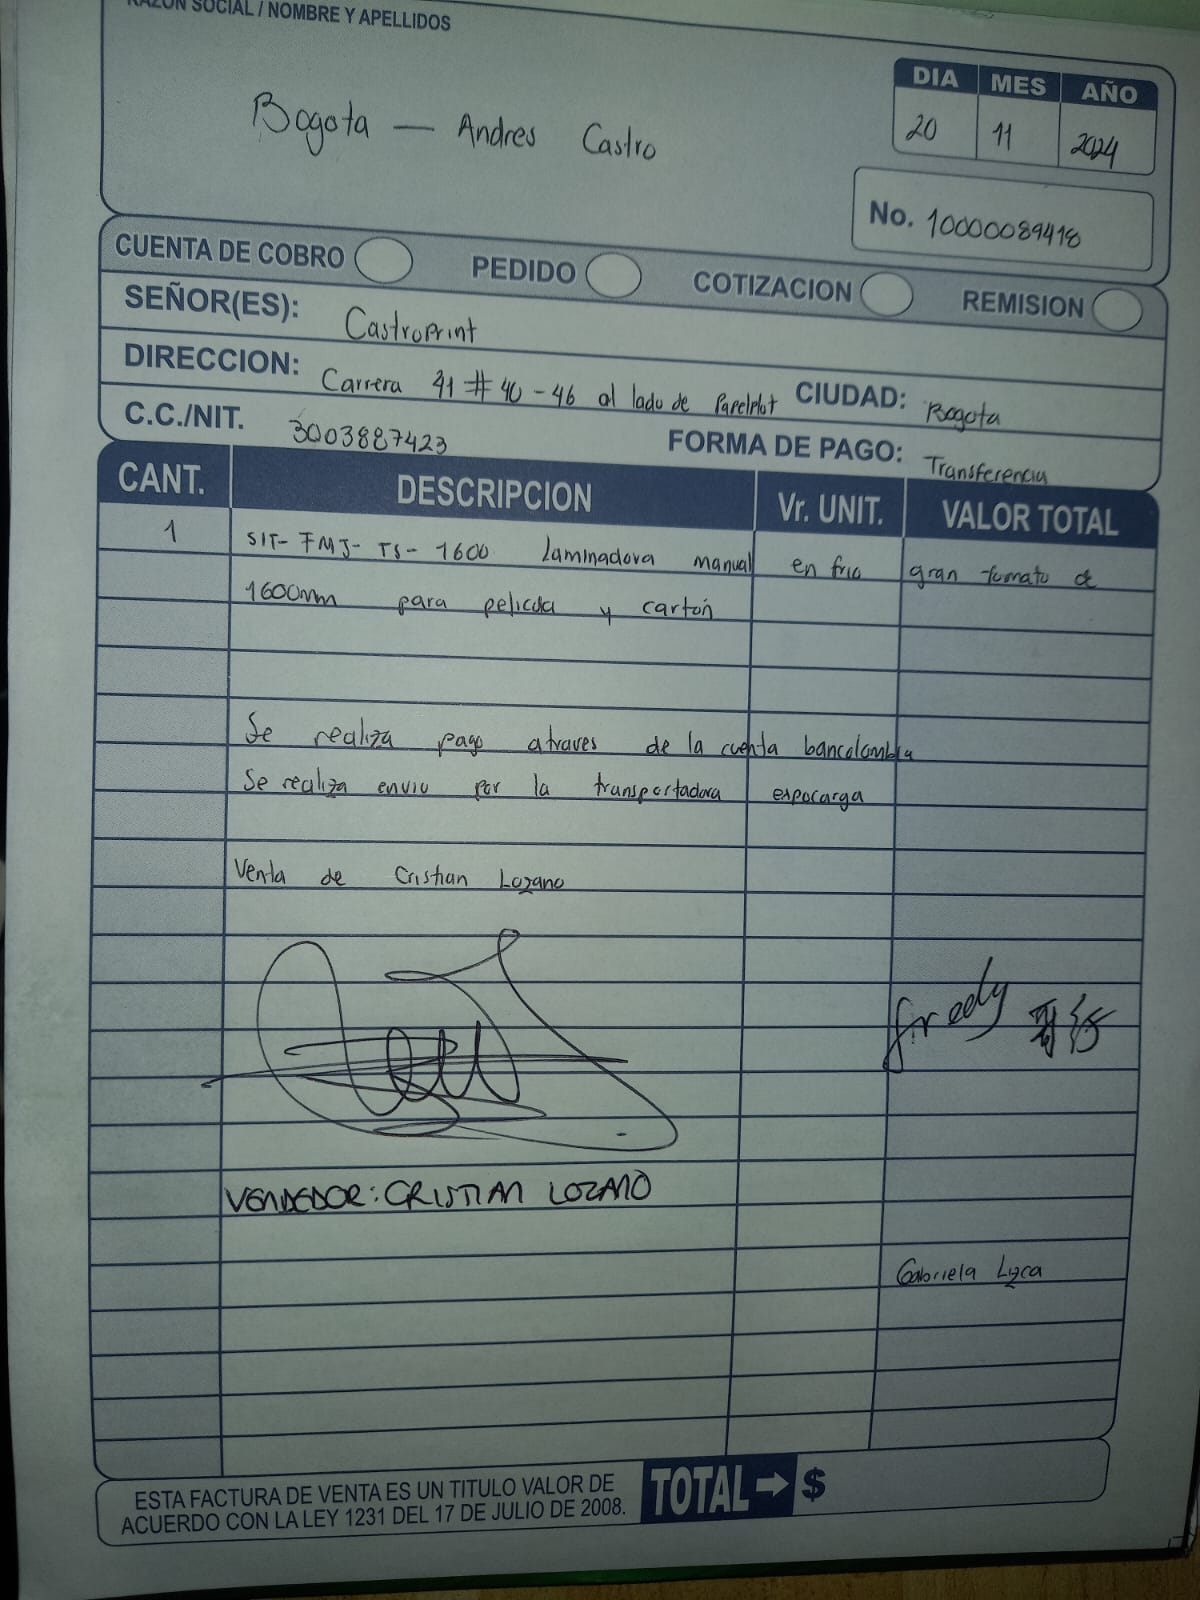 RAZON SOCIAL / NOMBRE Y APELLIDOS
Bogota — Andres Castro
DIA MES AÑO
20 11 2024
No. 10000089418
CUENTA DE COBRO PEDIDO COTIZACION REMISION
SEÑOR(ES): Castroprint
DIRECCION: Carrera 31 # 40 - 46 al lado de Papelplot CIUDAD: Bogota
C.C./NIT. 3003887423 FORMA DE PAGO: Transferencia
CANT. DESCRIPCION Vr. UNIT. VALOR TOTAL
1 SIT- FMJ- TS- 1600 Laminadora manual en frio gran formato de
1600mm para pelicula y cartón
Se realiza pago atraves de la cuenta bancolombia
Se realiza envio por la transportadora expocarga
Venta de Cristian Lozano
Fredy
VENDEDOR: CRISTIAN LOZANO
Gabriela
ESTA FACTURA DE VENTA ES UN TITULO VALOR DE
ACUERDO CON LA LEY 1231 DEL 17 DE JULIO DE 2008.
TOTAL → $